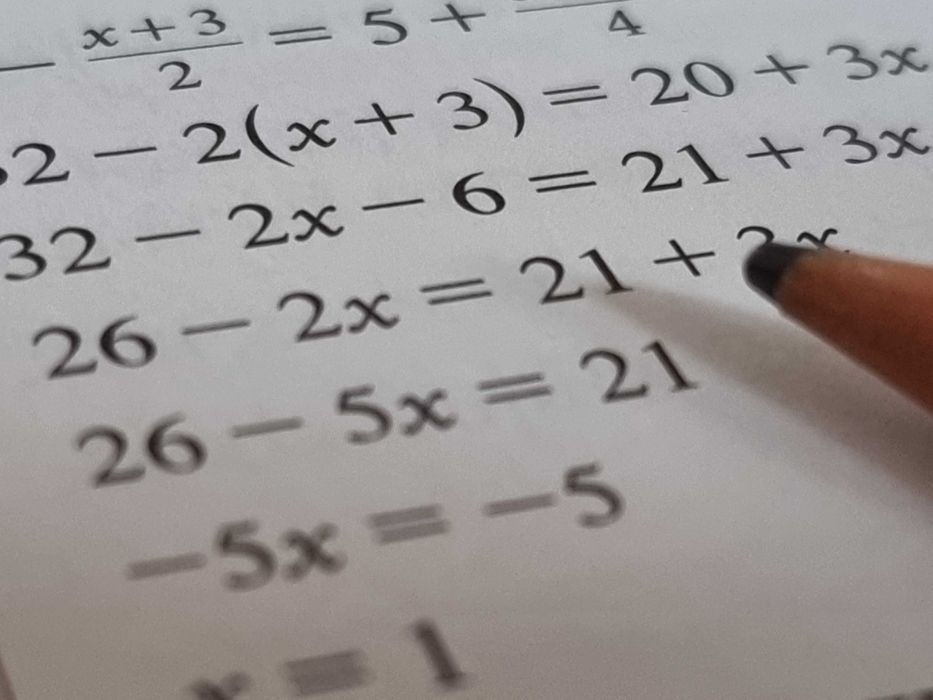 − \frac{x + 3}{2} = 5 + \frac{}{4}
2 − 2(x + 3) = 20 + 3x
32 − 2x − 6 = 21 + 3x
26 − 2x = 21 + 3x
26 − 5x = 21
−5x = −5
x = 1